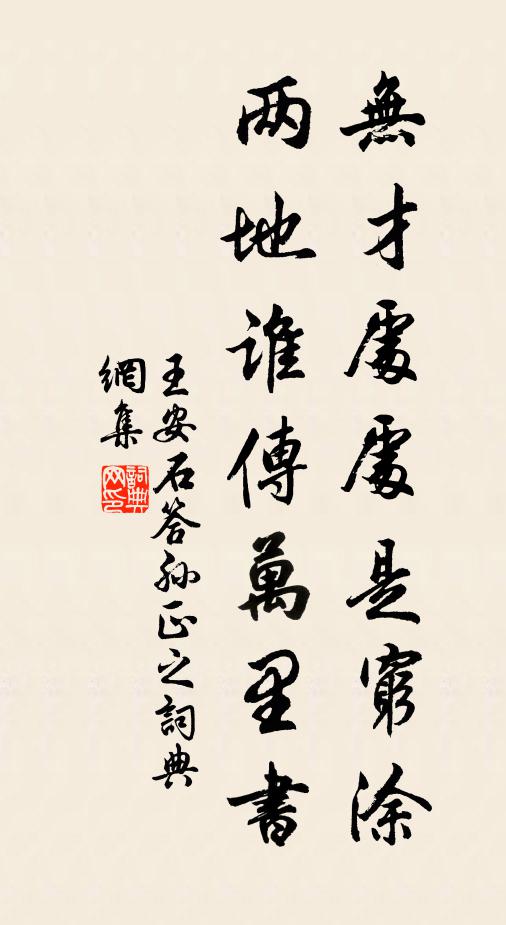 無才處處是窮涂
两地誰傳萬里書
王安石答孙正之詞典
網集
詞典
网印